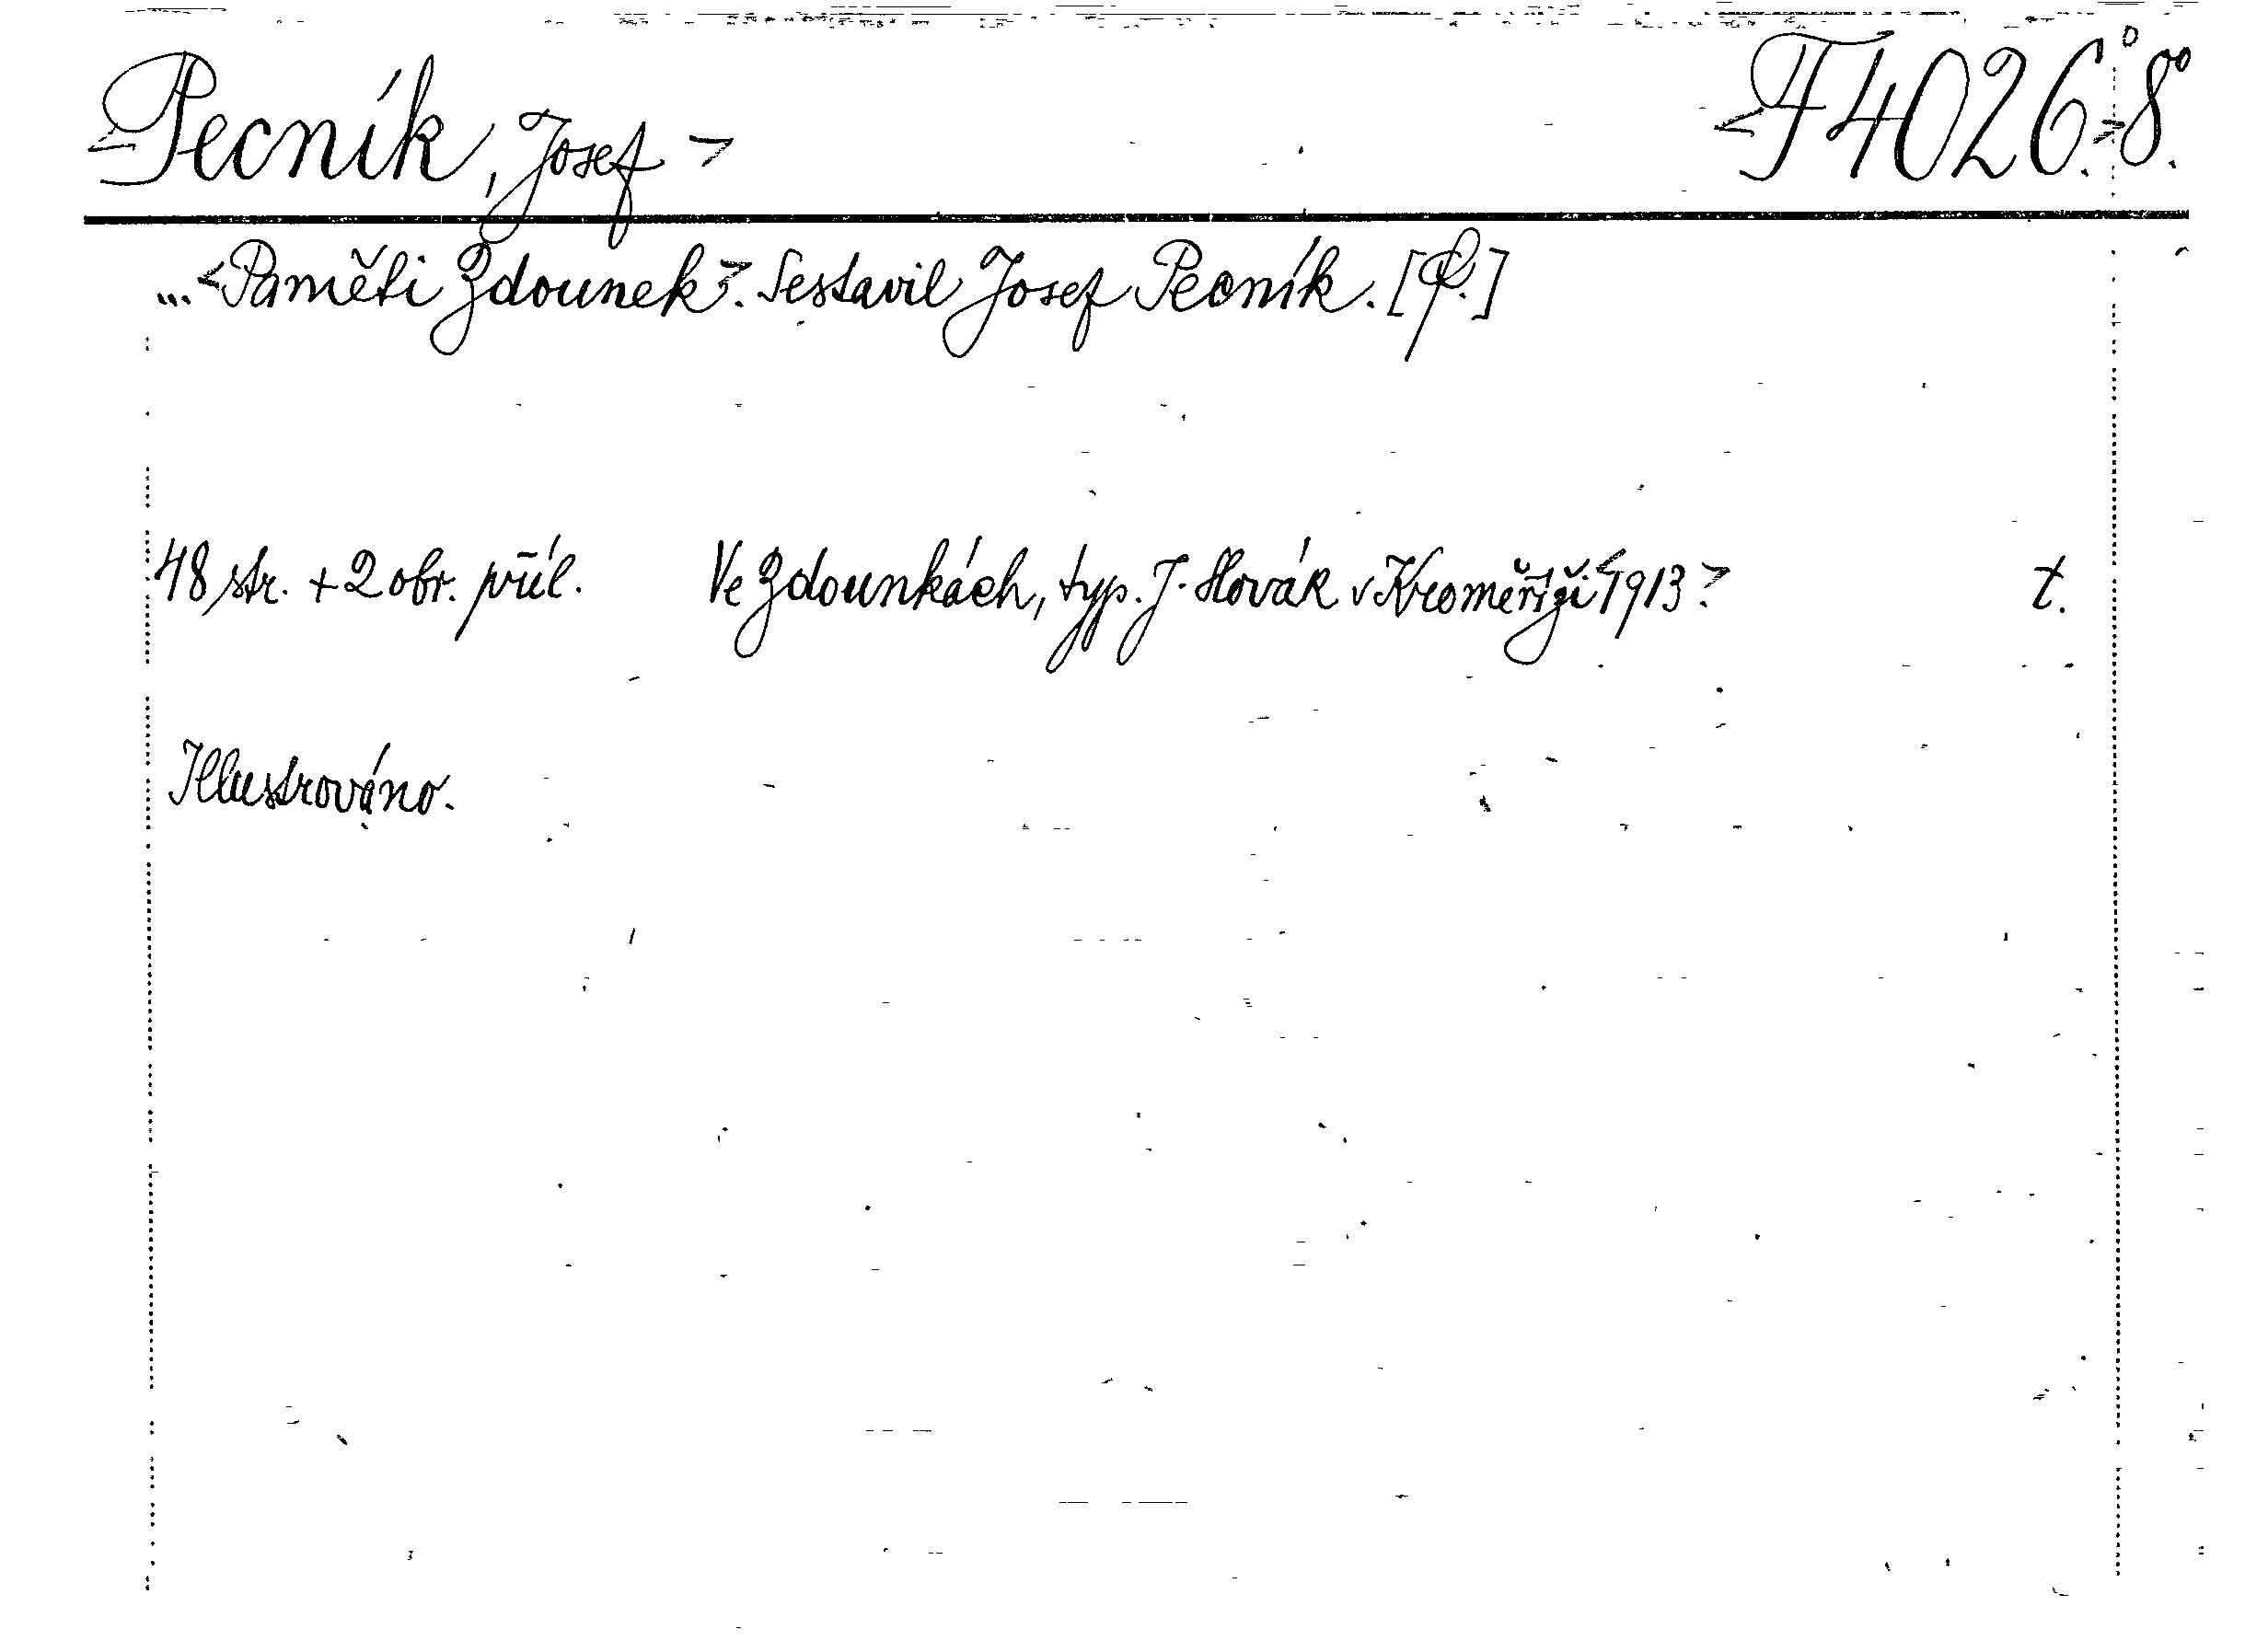 <Pecník, Josef> <F4026.>8°.
...<Paměti Zdounek>. Sestavil Josef Pecník.
48 str. + 2 obr. příl. Ve Zdounkách, typ. J. Slovák v Kroměříži <1913>. t.
Illustrováno.